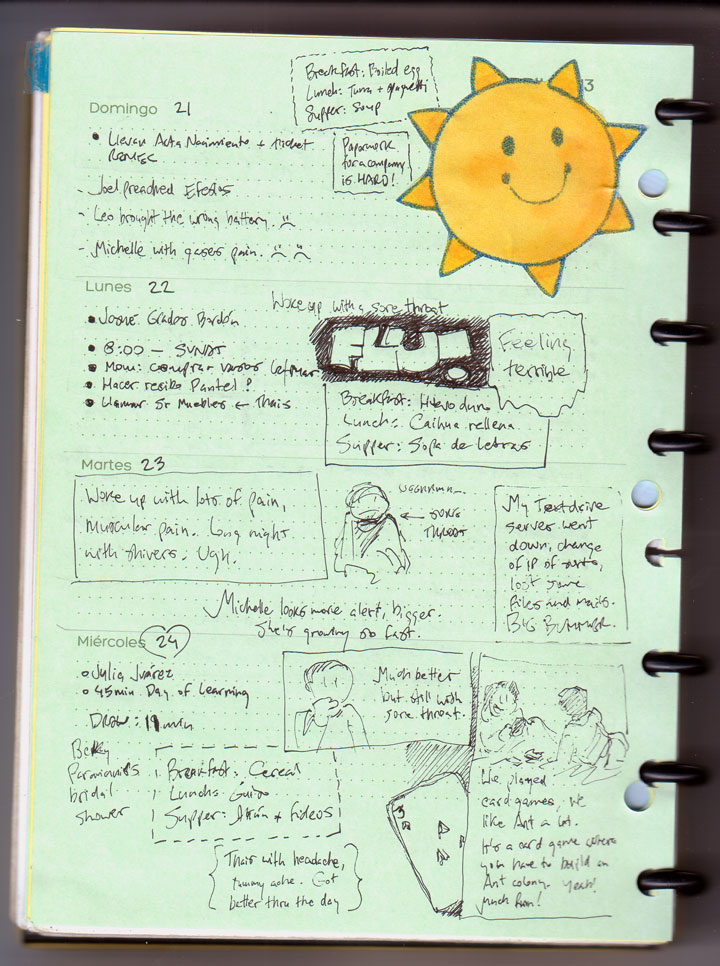 Breakfast: Boiled egg
Lunch: Tuna + spaghetti
Supper: Soup
3
Domingo 21
• Llevar Acta Nacimiento + ticket
RENIEC
Paperwork
for a company
is HARD!
- Joel preached Efesios
- Leo brought the wrong battery.
- Michelle with gases pain.
Lunes 22
Woke up with a sore throat
• Josué Grados Bardón
• 8:00 - SUNAT
• Mom: comprar
• Hacer recibo Pantel?
• Llamar Sr Muebles ← Thais
FLU!
Feeling
terrible
Breakfast: Huevo duro
Lunch: Caihua rellena
Supper: Sopa de letras
Martes 23
Woke up with lots of pain,
muscular pain. Long night
with shivers. Ugh.
← SORE
THROAT
My Testdrive
server went
down, change
of IP of
lost some
files and mails.
BIG BUMMER.
Michelle looks more alert, bigger.
She's growing so fast.
Miércoles 24
o Julia Juárez
o 45min Day of Learning
DRAW: 19 min
Much better
but still with
sore throat.
Becky
bridal
shower
Breakfast: Cereal
Lunch: Guiso
Supper: Atún + Fideos
Thais with headache,
tummy ache. Got
better thru the day
We played
card games, we
like Ant a lot.
It's a card game where
you have to build an
Ant colony. Yeah!
Much fun!